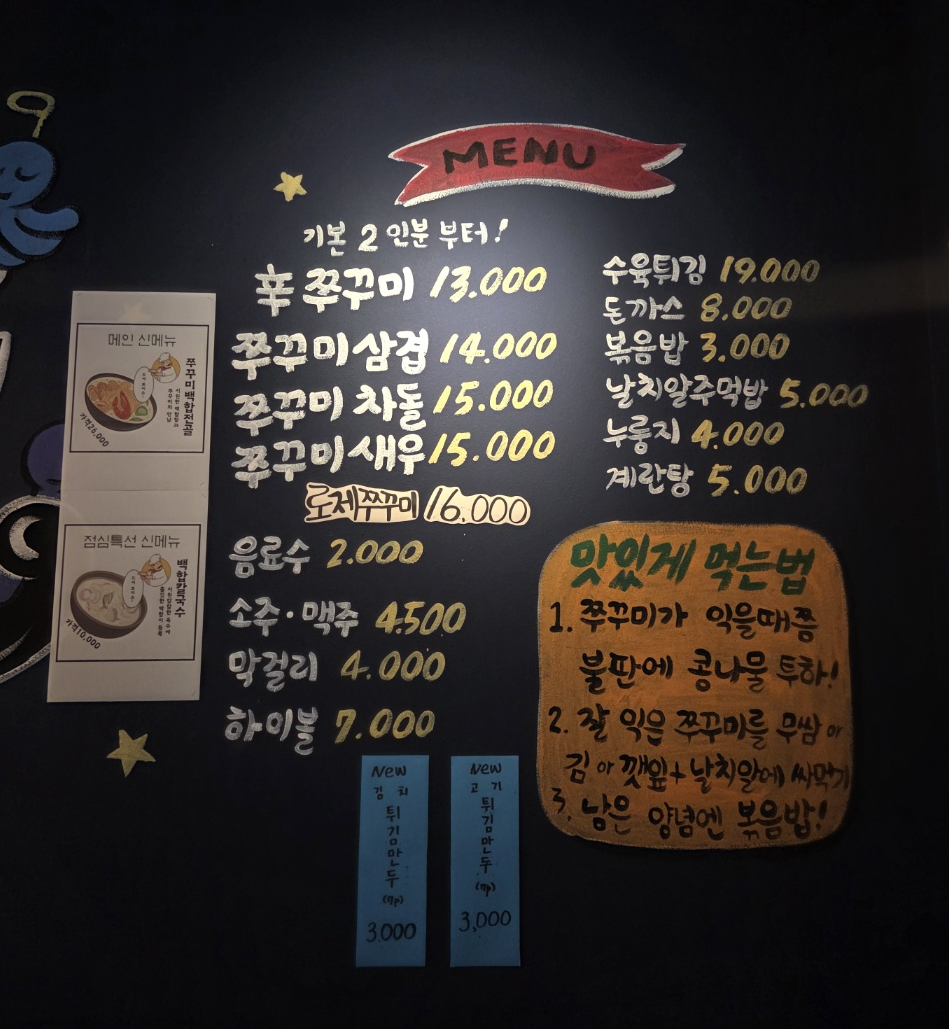 MENU
기본 2인분 부터!
辛 쭈꾸미 13.000
쭈꾸미삼겹 14.000
쭈꾸미 차돌 15.000
쭈꾸미새우 15.000
로제쭈꾸미 16,000
음료수 2.000
소주·맥주 4.500
막걸리 4.000
하이볼 7.000
수육튀김 19.000
돈까스 8.000
볶음밥 3.000
날치알주먹밥 5.000
누룽지 4.000
계란탕 5.000
맛있게 먹는법
1. 쭈꾸미가 익을때쯤
불판에 콩나물 투하!
2. 잘 익은 쭈꾸미를 무쌈 or
김 or 깻잎+날치알에 싸먹기
3. 남은 양념엔 볶음밥!
메인 신메뉴
쭈꾸미백합전골
가격26,000
점심특선 신메뉴
백합칼국수
가격10,000
New
김치
튀김만두
(7p)
3.000
New
고기
튀김만두
(7p)
3,000